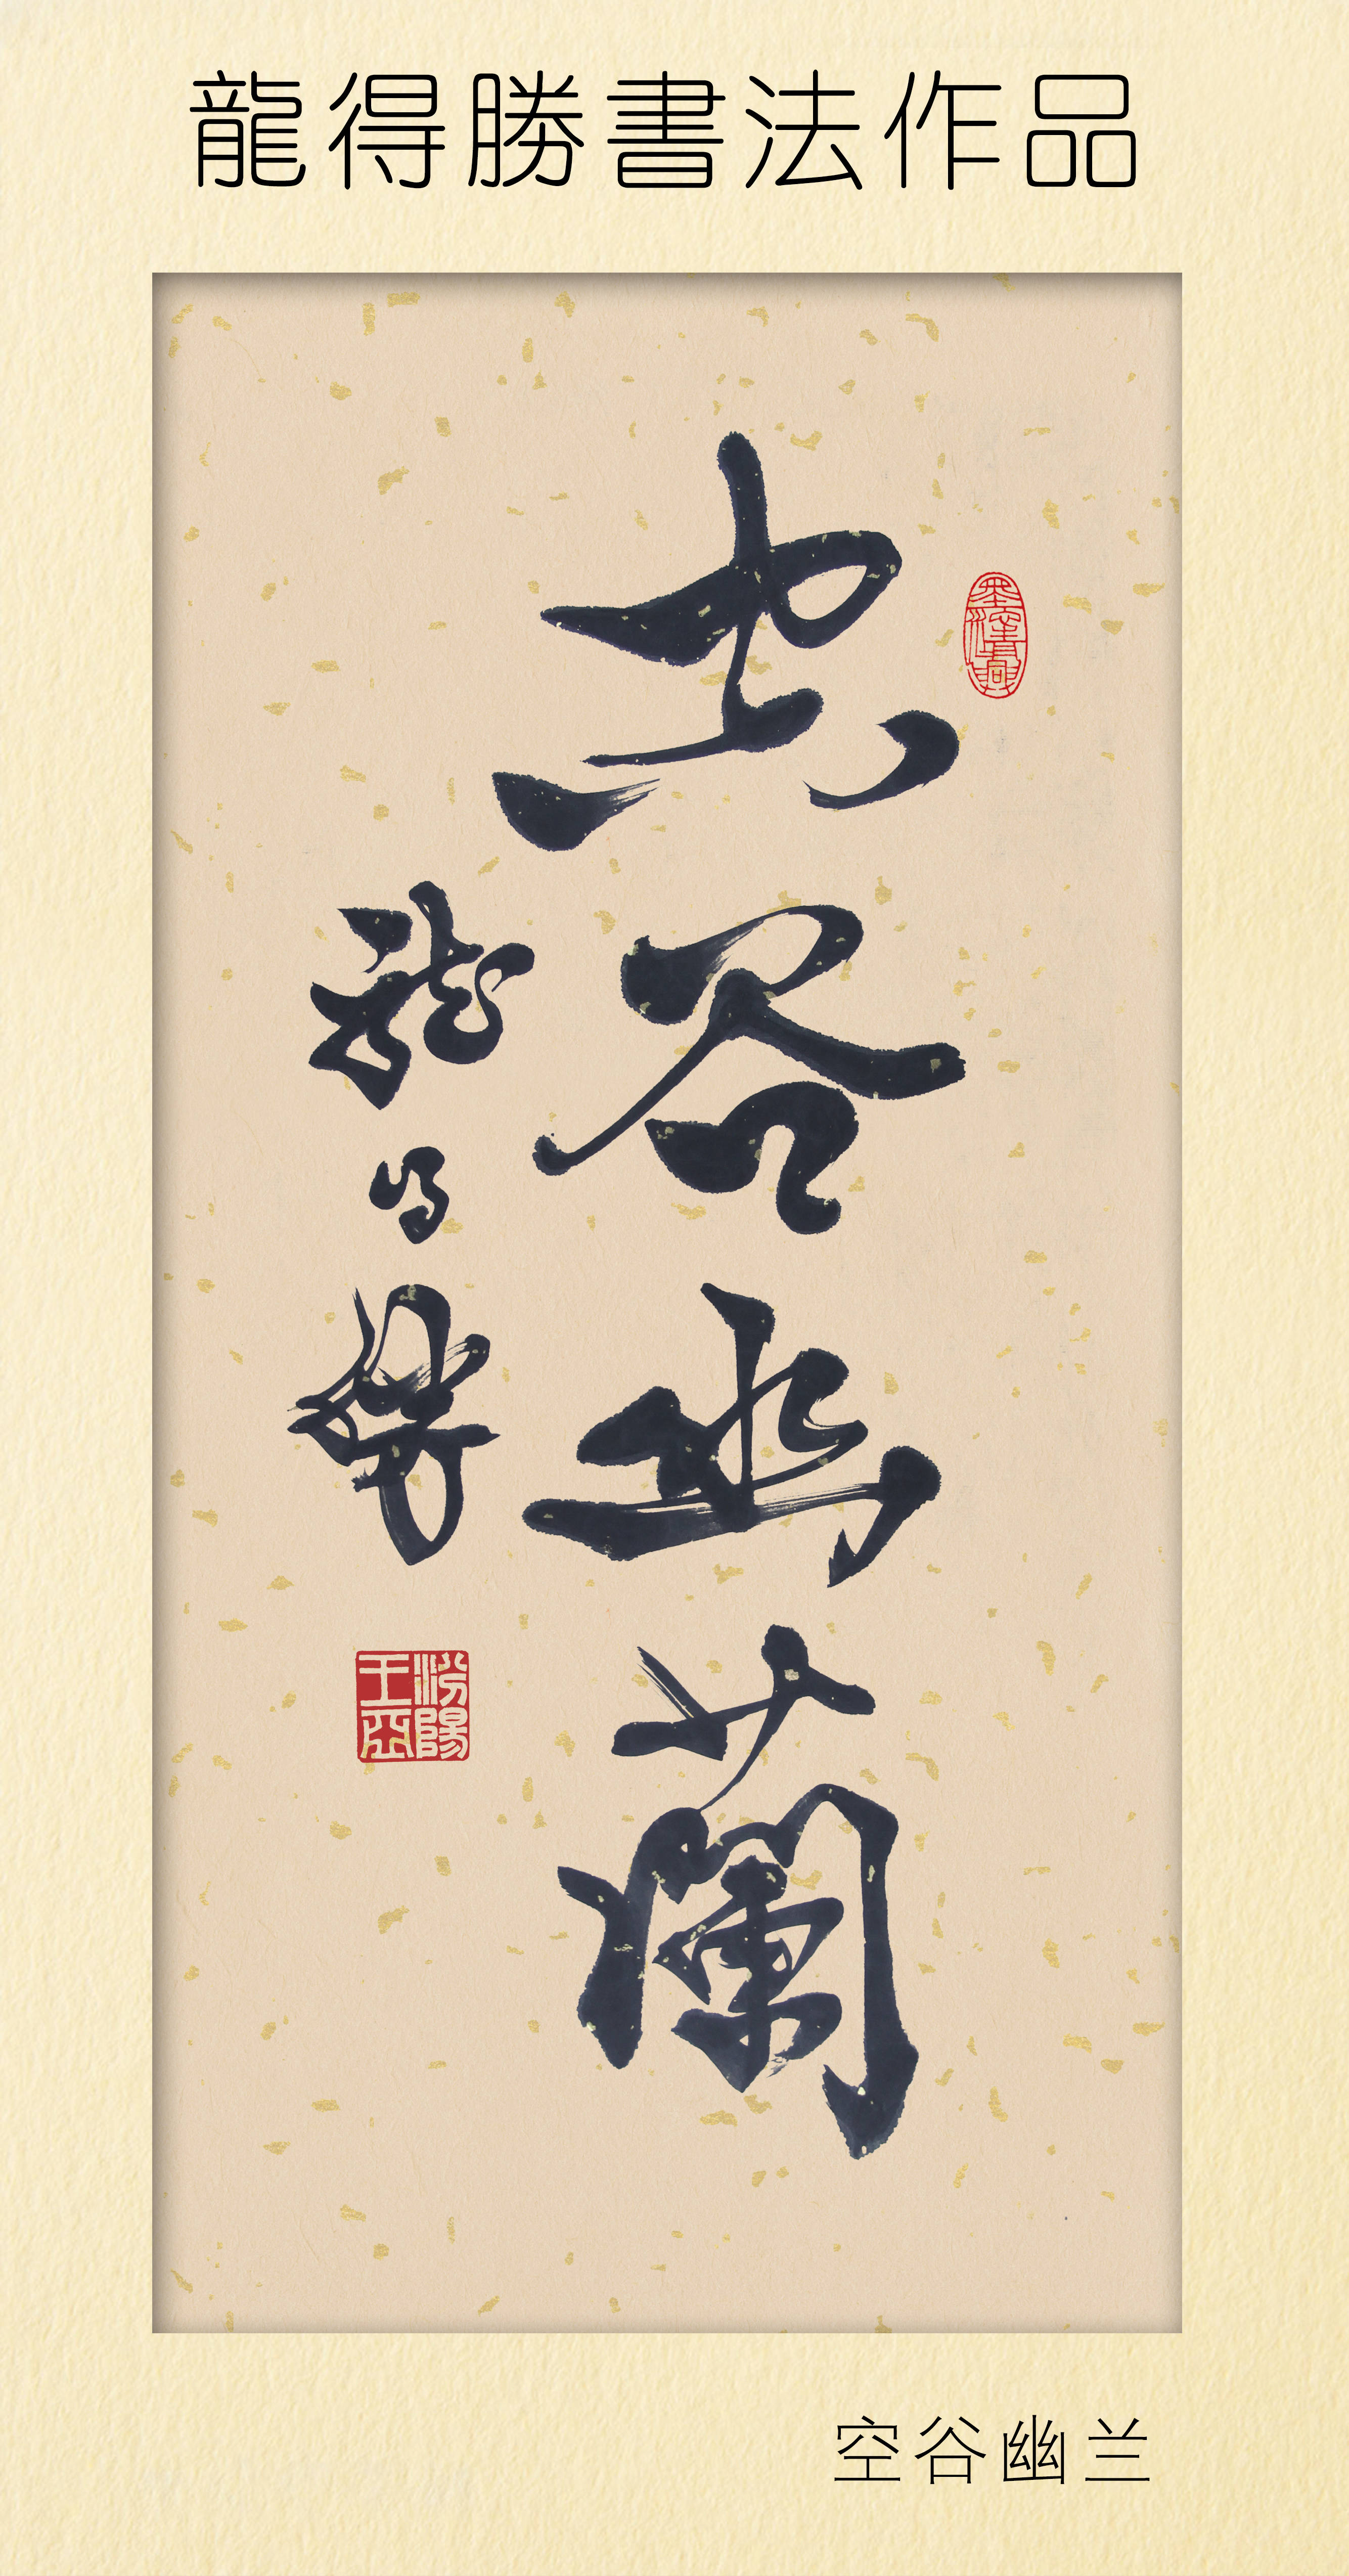 龍得勝書法作品
空谷幽蘭
龍得勝
汾陽
空谷幽兰